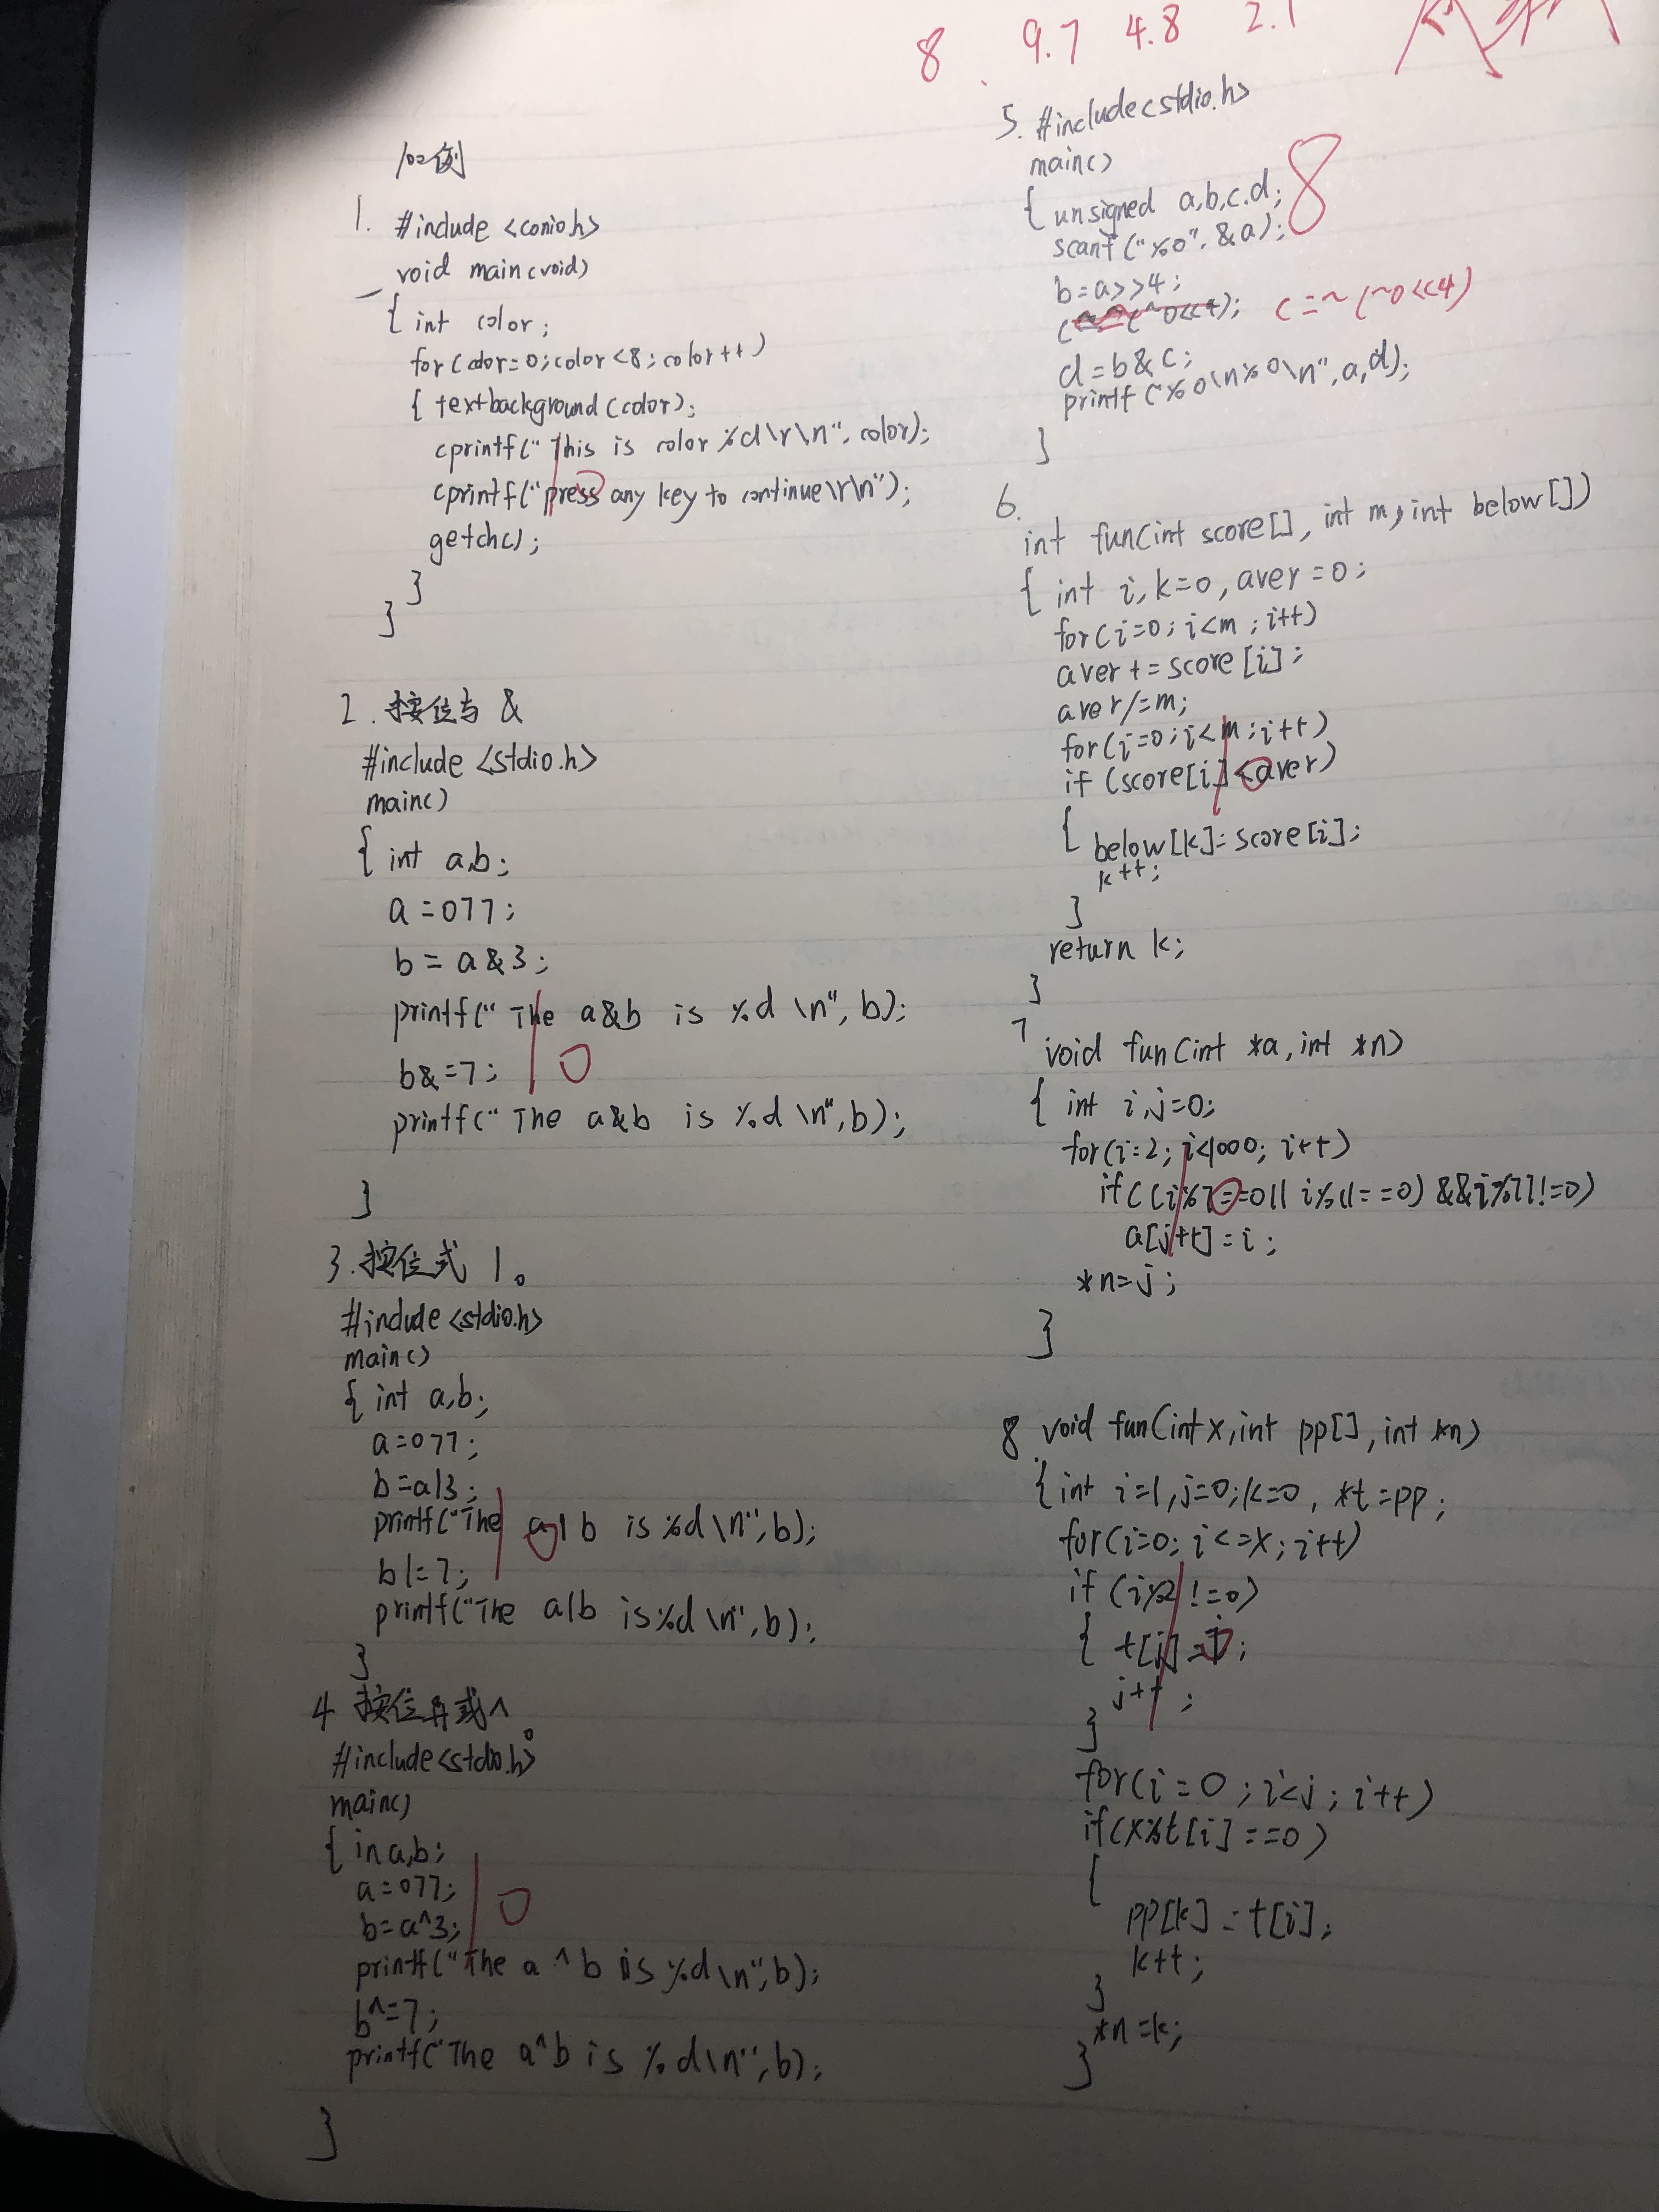 100例
1. #include <conio.h>
void main(void)
{ int color;
for(color=0;color<8;color++)
{ textbackground(color);
cprintf("This is color %d\r\n",color);
cprintf("press any key to continue\r\n");
getch();
}
}
2. 按位与 &
#include <stdio.h>
main()
{ int a,b;
a=077;
b=a&3;
printf("The a&b is %d \n",b);
b&=7; 10
printf("The a&b is %d \n",b);
}
3.按位式 |。
#include <stdio.h>
main()
{ int a,b;
a=077;
b=a|3;
printf("The a|b is %d \n",b);
b|=7;
printf("The a|b is %d \n",b);
}
4 按位异或^。
#include<stdio.h>
main()
{ in a,b;
a=077; 10
b=a^3;
printf("The a ^ b is %d \n",b);
b^=7;
printf("The a^b is %d\n",b);
}
8 . 9.7 4.8 2.1
5. #include<stdio.h>
main()
{ unsigned a,b,c.d; 8
scanf("%o",&a);
b=a>>4;
c=~(~0<<4); c=~(~0<<4)
d=b&c;
printf("%o\n%o\n",a,d);
}
6.
int fun(int score[], int m, int below[])
{ int i,k=0,aver=0;
for(i=0;i<m;i++)
aver+=score[i];
aver/=m;
for(i=0;i<m;i++)
if(score[i]<aver)
{ below[k]=score[i];
k++;
}
return k;
}
7 void fun(int *a,int *n)
{ int i,j=0;
for(i=2;i<1000;i++)
if((i%7==0||i%11==0)&&i%77!=0)
a[j++]=i;
*n=j;
}
8 void fun(int x,int pp[],int *n)
{int i=1,j=0;k=0, *t=pp;
for(i=0;i<=x;i++)
if(i%2!=0)
{ t[j]=i;
j++;
}
for(i=0;i<j;i++)
if(x%t[i]==0)
{
pp[k]=t[i];
k++;
}
*n=k;
}